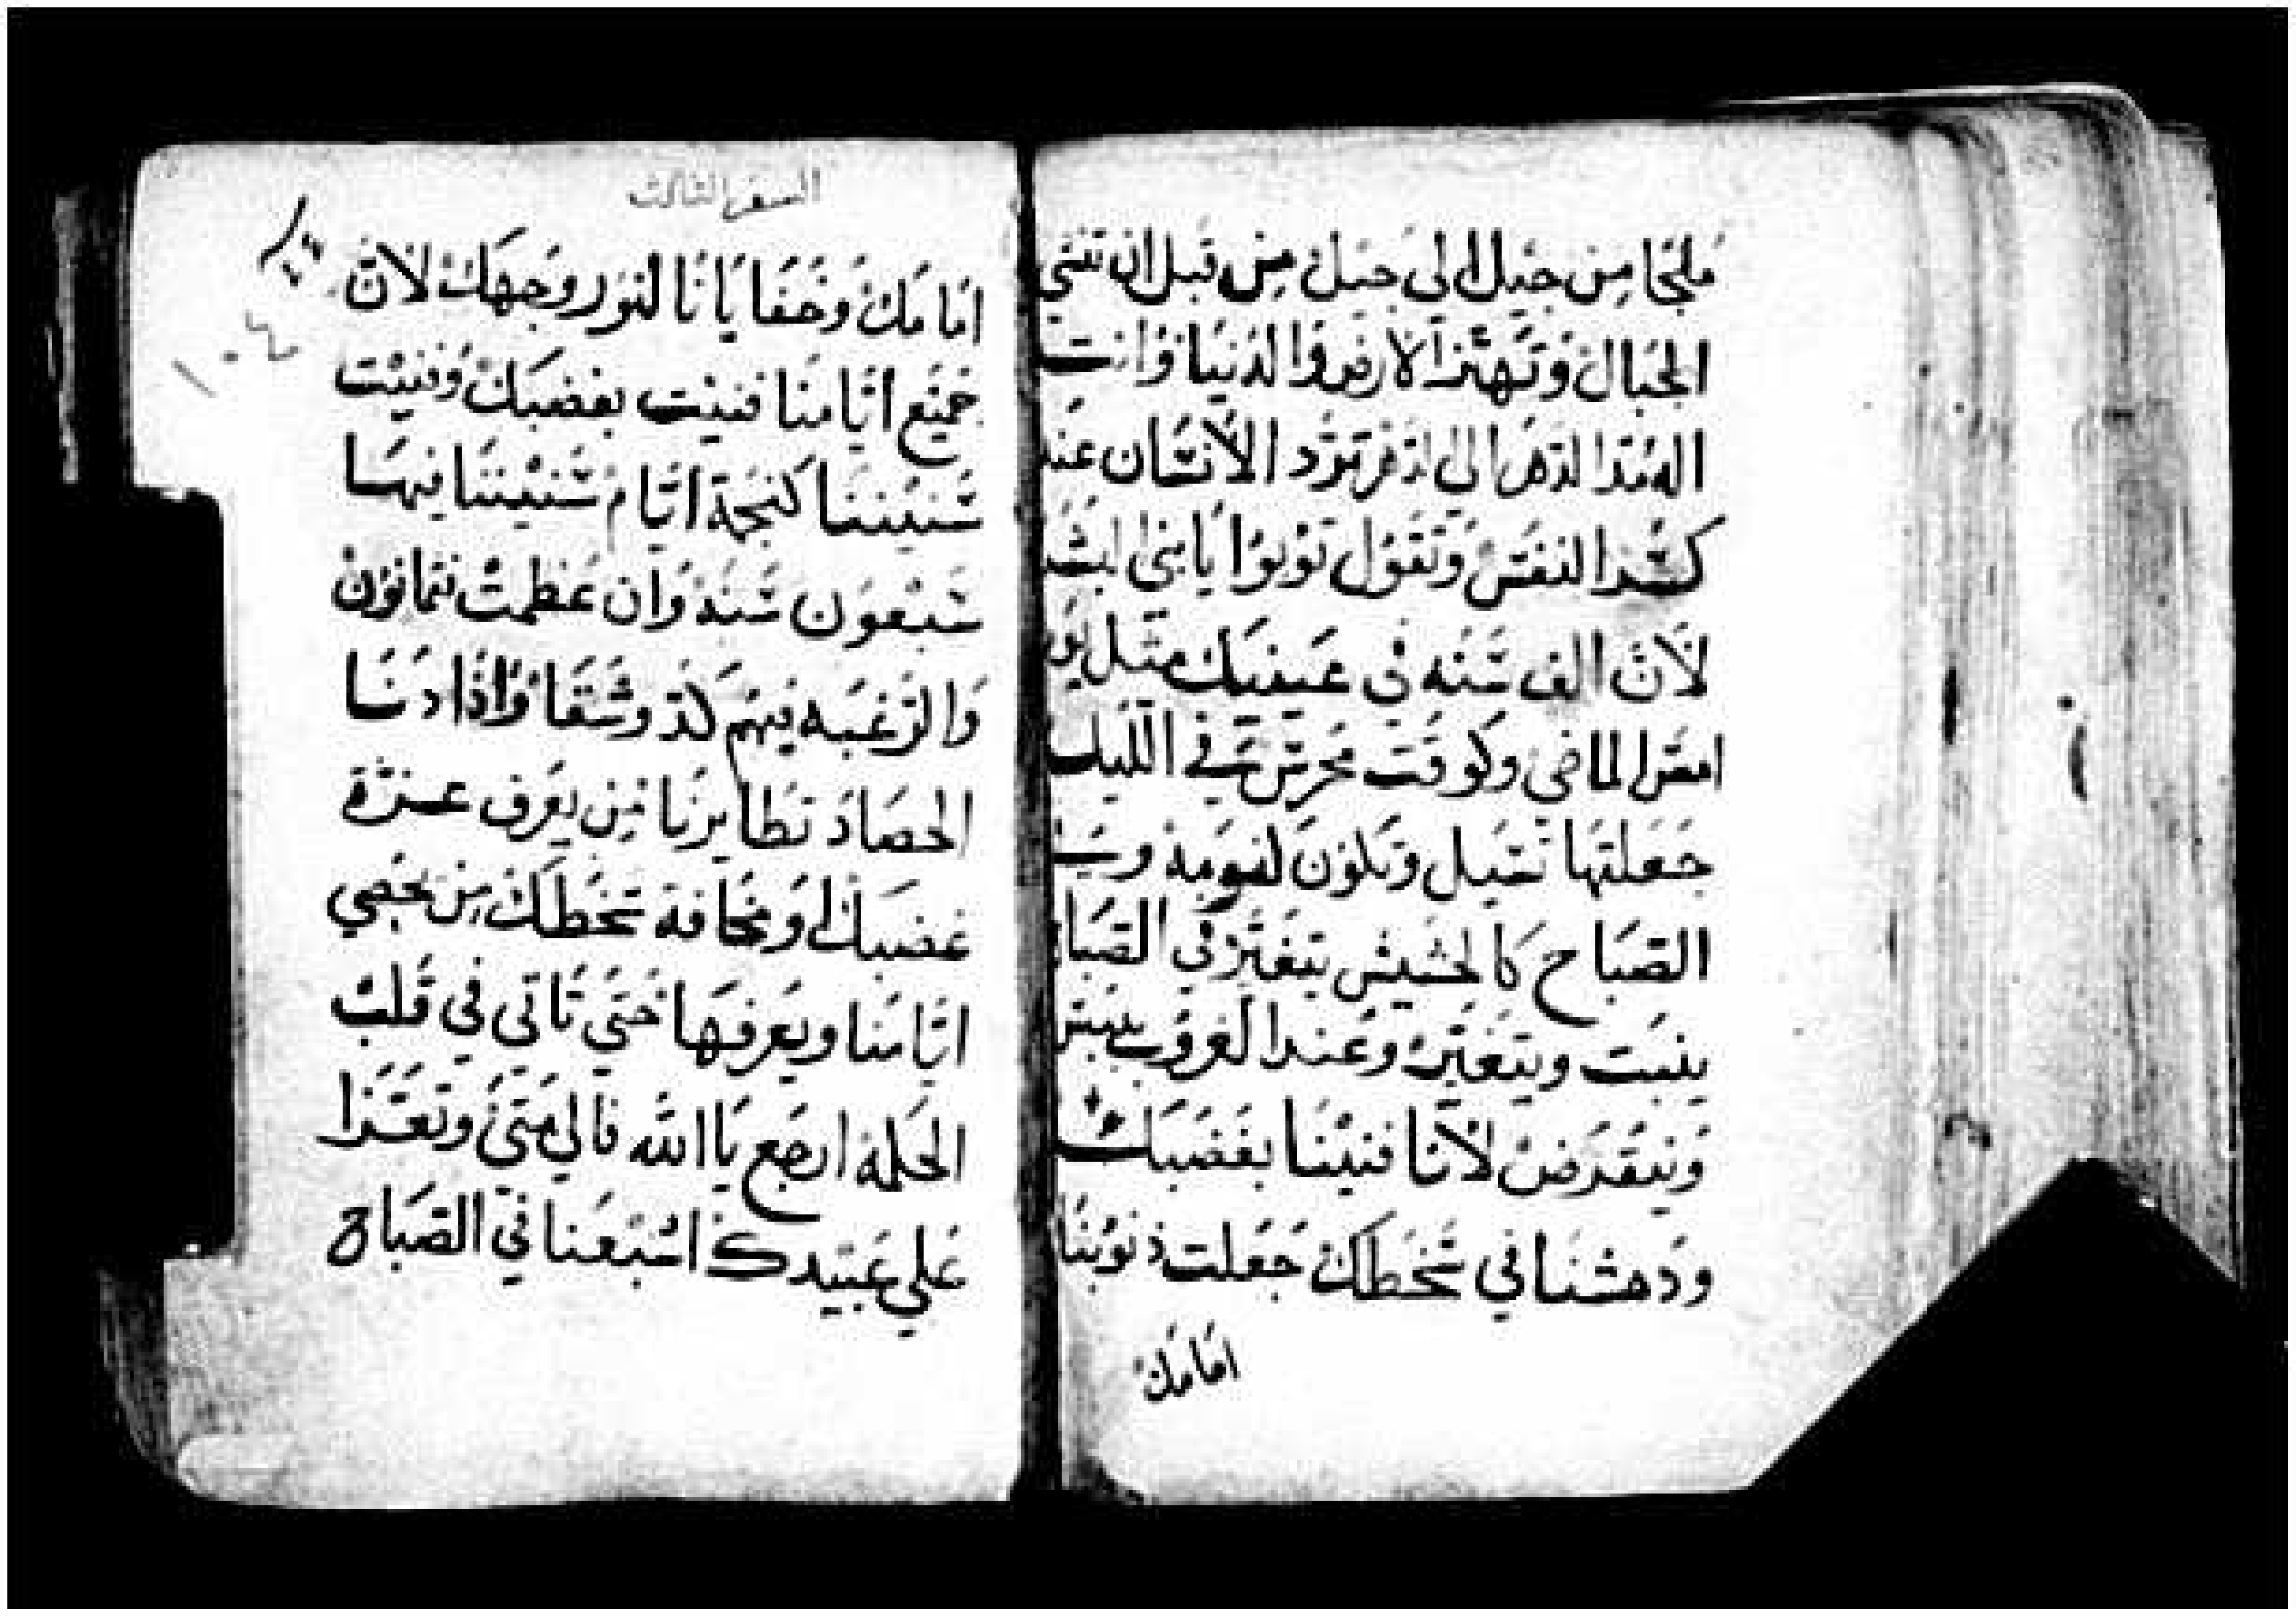 ملجا من جيل الي جيل من قبل ان تنثي
الجبال وتهتز الارض والدنيا وانت
اله منذ الدهر الي الدهر ترد الانسان عند
كسر النفس وتقول توبوا يا بني البشر
لان الف سنه في عينيك مثل يوم
امس الماضي وكوقت محرس في الليل
جعلتها تميل وتكون لقومه وب
الصباح كالحشيش يتغير في الصباح
ينبت ويتغير وعند الغروب ييبس
وينقرض لاننا فنينا بغضبك
ودهشنا في سخطك جعلت ذنوبنا
امامك
السفر الثالث
امامك وخفايانا لنور وجهك لان
جميع ايامنا فنيت بغضبك وفنيت
سنيننا كنجمة ايام سنيننا فيها
سبعون سنه وان عظمت ثمانون
والرغبه فيهم كد وشقا واذا دنا
الحصاد تطايرنا من يعرف عزة
غضبك او مخافة سخطك من يحصي
ايامنا ويعرفها حتي تاتي في قلب
الحكمه ارجع يا الله فالي متي وتعزا
علي عبيدك اشبعنا في الصباح